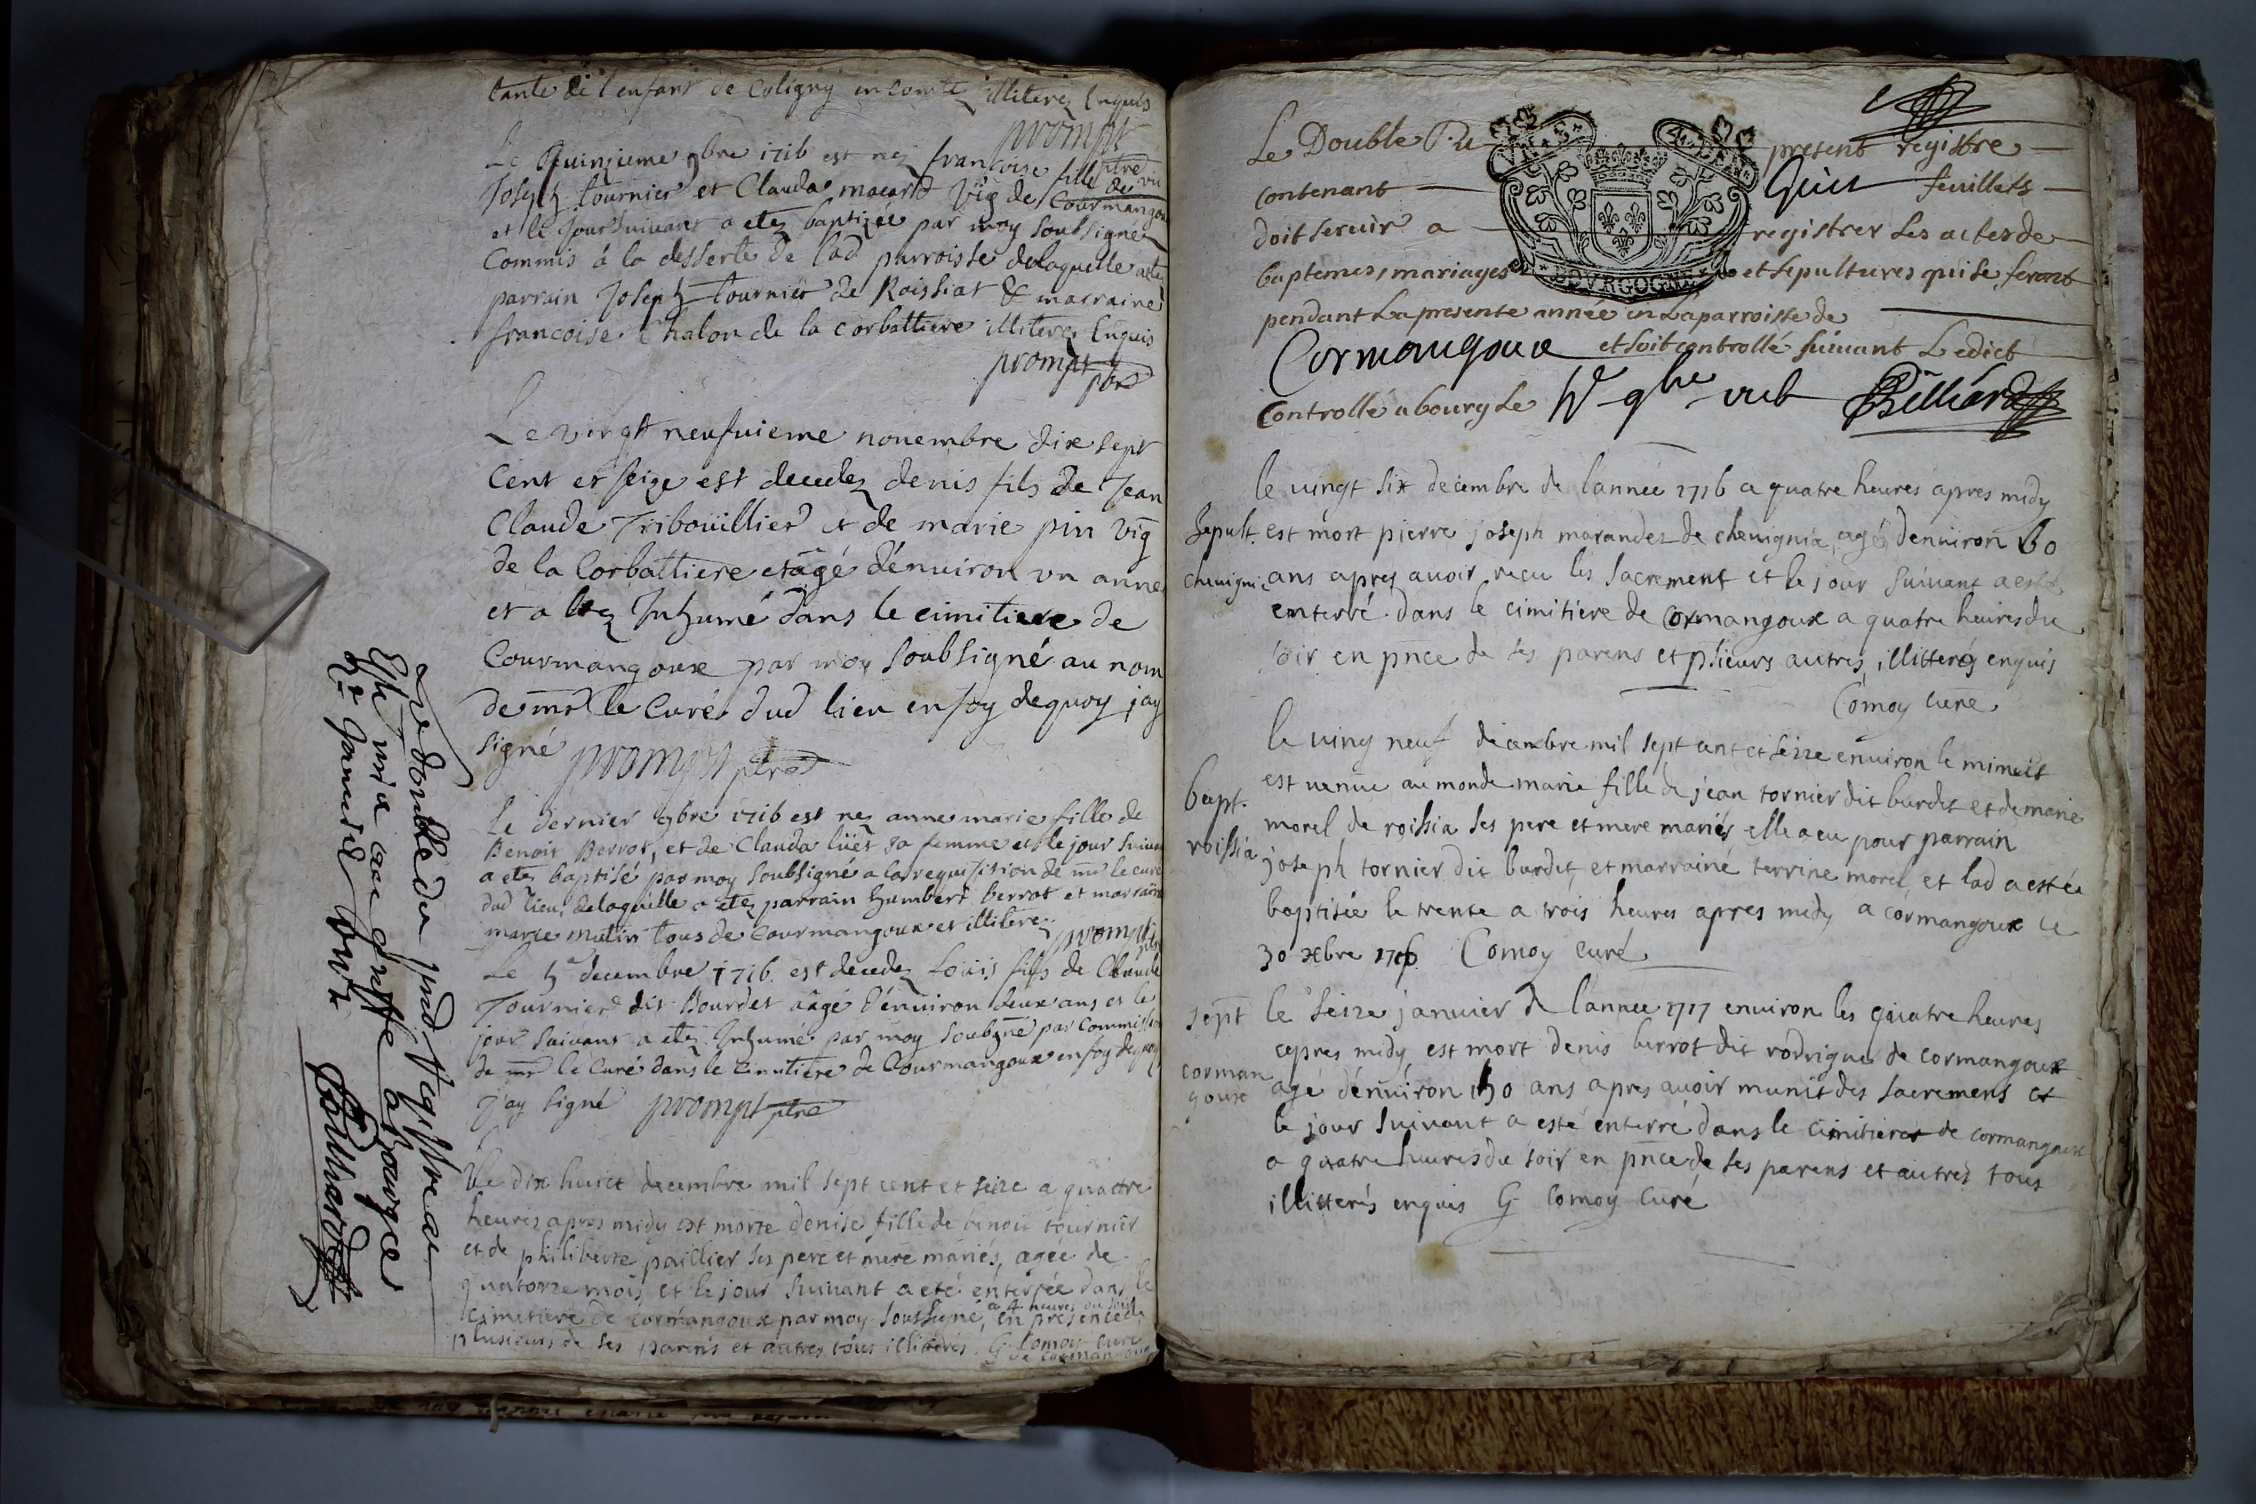 tante de l'enfant de Coligny en comte illiterez Enquis
prompt
ptre vic
Le Quinzieme 9bre 1716 est nez francoise fille de
Joseph tournier et Clauda macard vig de Courmangou
et le jour suivant a etez baptizée par moy soubsigné
Commis á la desserte de lad parroisse delaquelle a ete
parrain Joseph tournier de Roissiat & marraine
francoise Chalon de la Corbattiere illiterez Enquis
prompt
ptre
Le vingt neufuieme nouembre dix sept
Cent et seize est decedez denis fils de Jean
Claude Triboüillier et de marie pin vig
de la Corbattiere et âgé d'énuiron vn anne
et a etez Inhumé dans le cimitiere de
Courmangoux par moy soubsigné au nom
de mr le Curé dud lieu en foy dequoy jay
signé prompt ptre
Le dernier 9bre 1716 est nez anne marie fille de
Benoit Berrot, et de Clauda lüet sa femme et le jour suiua
a etez baptisé par moy soubsigné a la requisision de mr le curé
dud lieu, delaquelle a etez parrain humbert berrot et marraine
marie mutin tous de Courmangoux et illiterez prompt
ptre
Le 5e decembre 1716 est decedez Loüis fils de Claude
Tournier dit Bourdet âagé d'énuiron deux ans et le
jour suiuant a etez Inhumé par moy soubzné par Commission
de mr le Curé dans le Cimitiere de Courmangoux en foy dequoy
j'ay signé prompt ptre
Le dix huict decembre mil sept cent et seize a quattre
heures apres midy est morte denise fille de benoit tournier
et de philiberte paillier ses pere et mere mariés, agée de
quatorze mois et le jour suiuant a eté énterrée dans le
a 4 heures du soir
Cimetiere de cormangoux par moy soussigné, en presence de
plusieurs de ses parens et autres tous illiterés. G Comoy curé
de cormangoux
Le double du pnt Registre a
Esté mis au greffe a bourg ce
Janvier
Le Double Du present registre
contenant feuillets
doit seruir a registrer les actes de
baptemes, mariages et sepultures qui se feront
pendant la presente année en la parroisse de
Cormangoux et soit controllé suiuant L edict
controllé a bourg Le 9bre Billiard
BOVRGOGNE
le uingt six decembre de lannée 1716 a quatre heures apres midy
Sepult. est mort pierre joseph marandet de cheuignia, agé denuiron 60
cheuigni. ans apres auoir reçu les sacrement et le jour suiuant a esté
enterré dans le cimitiere de cormangoux a quatre heures du
soir en pnce de ses parens et plieurs autres, illitterés enquis
Comoy curé
le uing neuf decembre mil sept cent et seize enuiron le minuit
est uenüe au monde marie fille de jean tornier dit burdet et de marie
bapt. morel de roissia ses pere et mere mariés elle a eu pour parrain
roissia joseph tornier dit burdet, et marrainé terrine morel, et lad a estée
baptisée le trente a trois heures apres midy a cormangoux ce
30 xbre 1716. Comoy curé
sept le seize janvier de lannee 1717 enuiron les quatre heures
apres midy est mort denis berrot dit rodrigue de cormangoux
corman
goux agé dénuiron 50 ans apres auoir munit des sacremens et
le jour suiuant a esté enterré dans le cimitiere de cormangoux
a quatre heures du soir en pnce de ses parens et autres tous
illitterés enquis G Comoy Curé